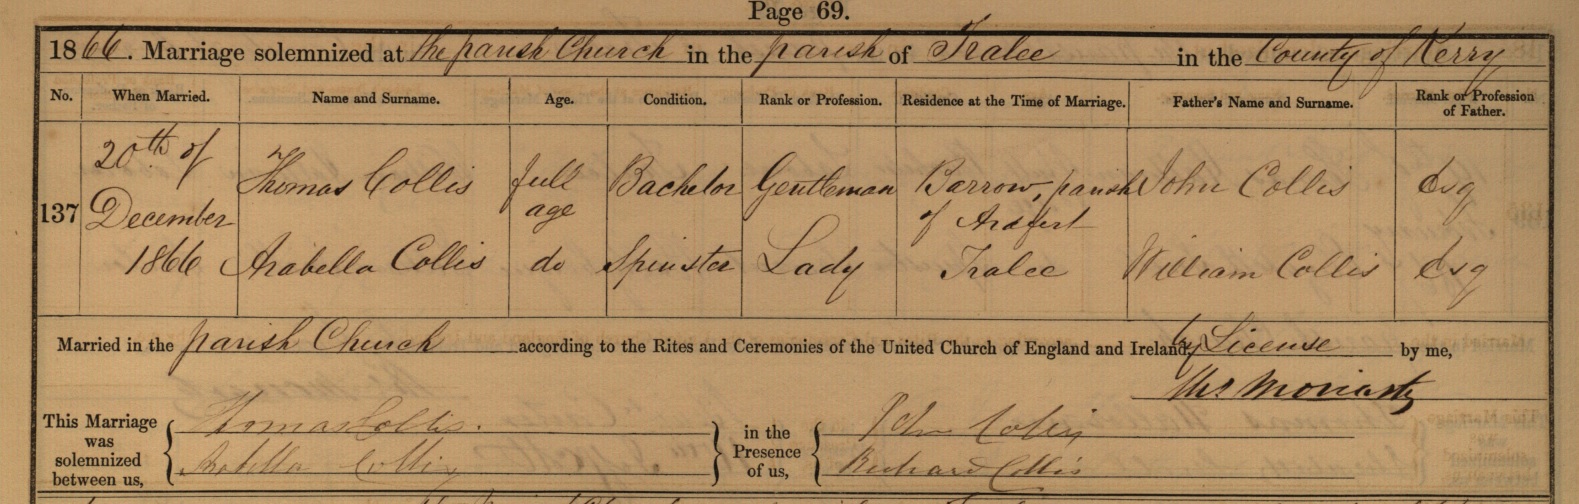 Page 69.
1866. Marriage solemnized at the parish Church in the parish of Tralee in the County of Kerry
No. When Married. Name and Surname. Age. Condition. Rank or Profession. Residence at the Time of Marriage. Father's Name and Surname. Rank or Profession of Father.
137 20th of December 1866 Thomas Collis full age Bachelor Gentleman Barrow, parish of Ardfert John Collis Esq
Arabella Collis do Spinster Lady Tralee William Collis Esq
Married in the parish Church according to the Rites and Ceremonies of the United Church of England and Ireland, by License by me,
Moriarty
This Marriage was solemnized between us, Thomas Collis. in the Presence of us, John Collis
Arabella Collis Richard Collis